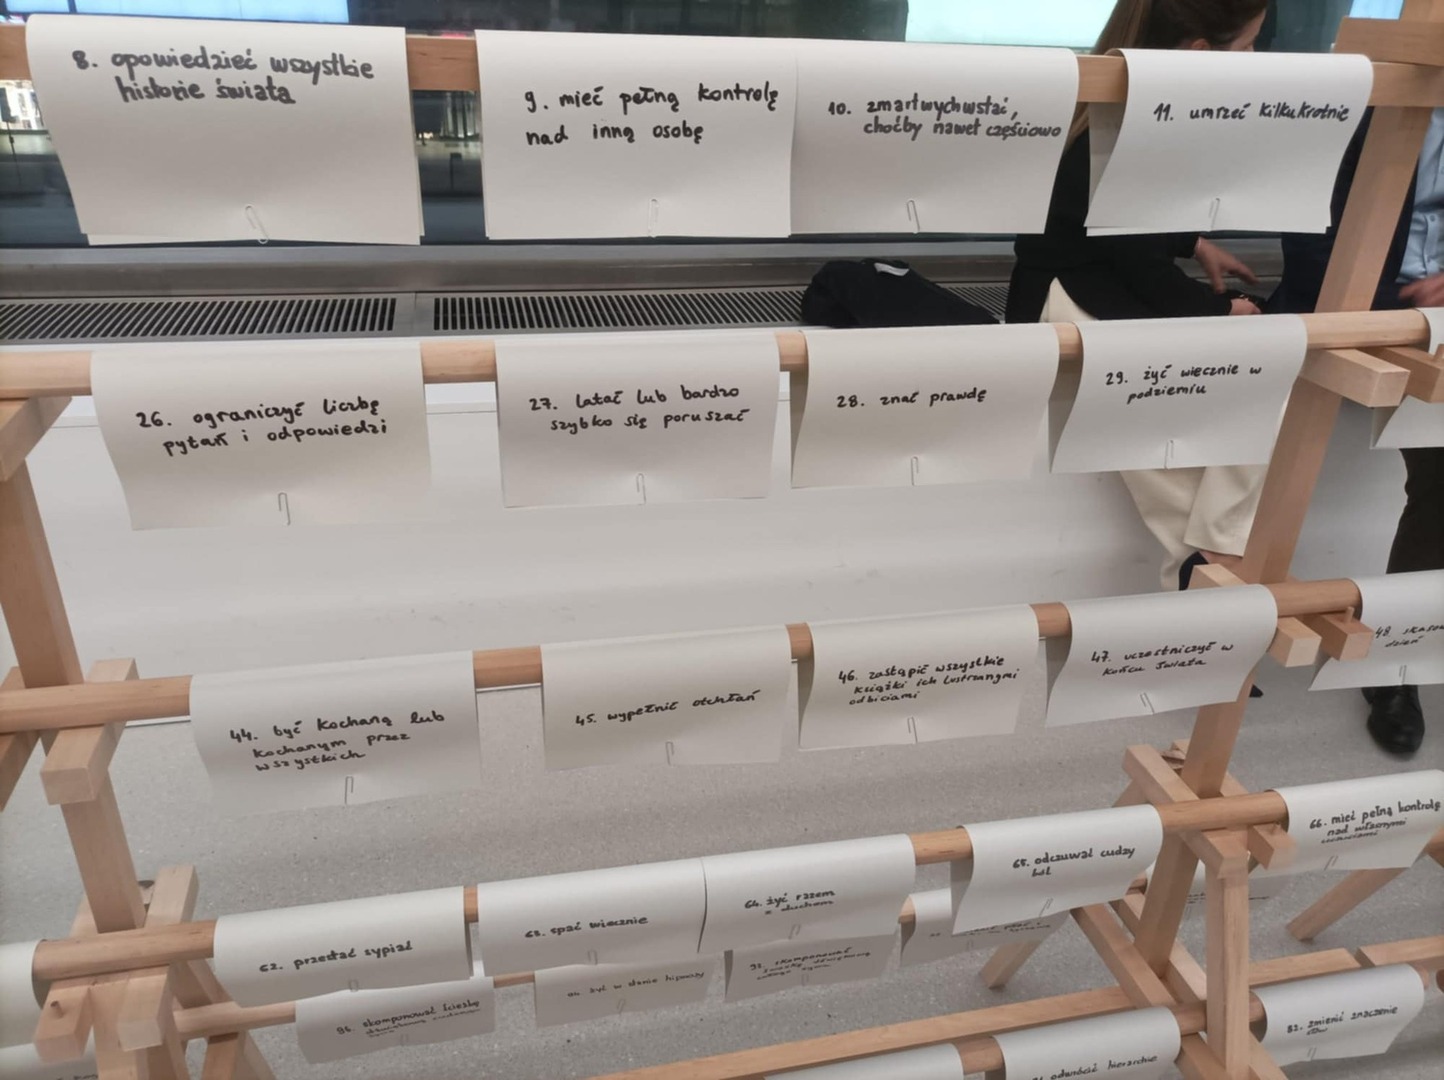 8. opowiedzieć wszystkie
historie świata
9. mieć pełną kontrolę
nad inną osobę
10. zmartwychwstać,
choćby nawet częściowo
11. umrzeć kilkukrotnie
26. ograniczyć liczbę
pytań i odpowiedzi
27. latać lub bardzo
szybko się poruszać
28. znać prawdę
29. żyć wiecznie w
podziemiu
44. być kochaną lub
kochanym przez
wszystkich
45. wypełnić otchłań
46. zastąpić wszystkie
książki ich lustrzanymi
odbiciami
47. uczestniczyć w
końcu świata
48
dzień
62. przestać sypiać
63. spać wiecznie
64. żyć razem
z duchem
65. odczuwać cudzy
ból
66. mieć pełną kontrolę
nad własnymi
uczuciami
96. skomponować ścieżkę
dźwiękową
94. żyć w stanie hipnozy
93. skomponować
82. zmienić znaczenie
słów
odwrócić hierarchie